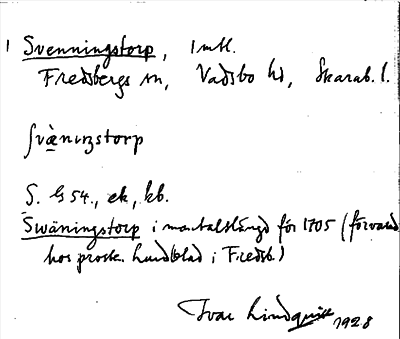 1 Svenningstorp, 1 mtl.
Fredsbergs sn, Vadsbo hd, Skarab. l.
ʃvä̀nıŋstorp
S. G 54., ek, kb.
Swäningstorp i mantalslängd för 1705 (förvarad
hos prosk. Lundblad i Fredsb.)
Ivar Lindquist 1928